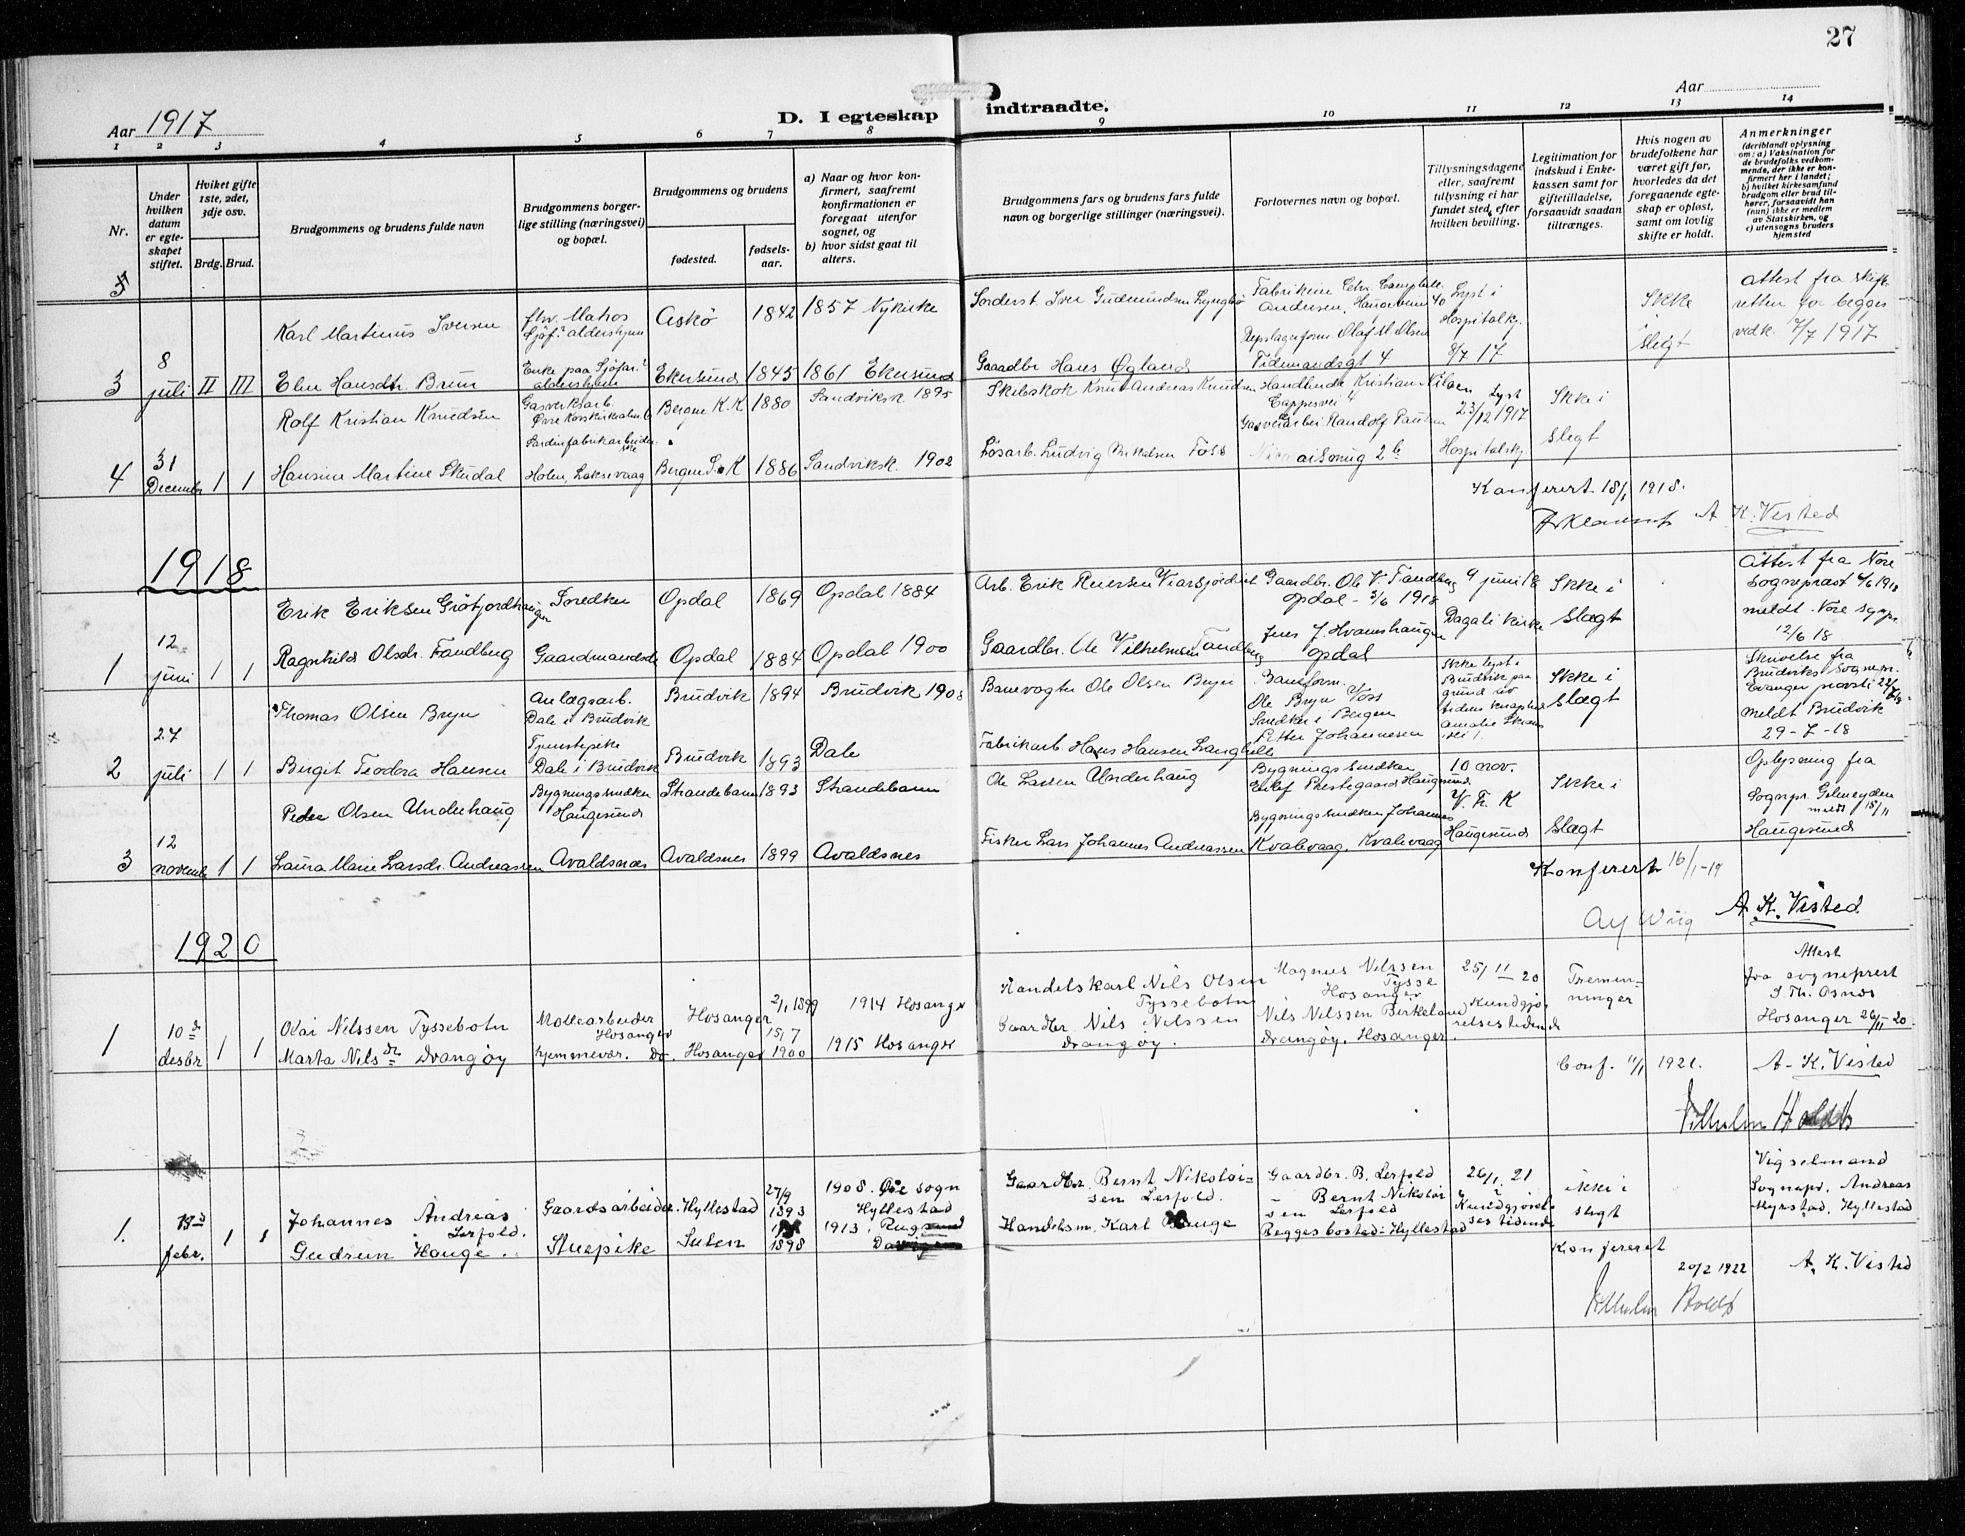 27
Aar 1917
D. I egteskap indtraadte.
Aar
1 2 3 4 5 6 7 8 9 10 11 12 13 14
Nr.
Under hvilken datum er egteskapet stiftet.
Hviket gifte 1ste, 2det, 3dje osv.
Brdg. Brud.
Brudgommens og brudens fulde navn
Brudgommens borgerlige stilling (næringsvei) og bopæl.
Brudgommens og brudens
fødested.
fødselsaar.
a) Naar og hvor konfirmert, saafremt konfirmationen er foregaat utenfor sognet, og
b) hvor sidst gaat til alters.
Brudgommens fars og brudens fars fulde navn og borgerlige stillinger (næringsvei).
Forlovernes navn og bopæl.
Tillysningsdagene eller, saafremt tillysning ei har fundet sted, efter hvilken bevilling.
Legitimation for indskud i Enkekassen samt for giftetilladelse, forsaavidt saadan tiltrænges.
Hvis nogen av brudefolkene har været gift før, hvorledes da det foregaaende egteskap er opløst, samt om lovlig skifte er holdt.
Anmerkninger
(deriblandt oplysning om: a) Vaksination for de brudefolks vedkommende, der ikke er konfirmert her i landet; b) hvilket kirkesamfund brudgom eller brud tilhører, forsaavidt han (hun) ikke er medlem av Statskirken, og c) utensogns bruders hjemsted
3
8 juli
II III
Karl Martinus Iversen
fhv. Matros
Sjøf. aldershjem
Askø
1842
1857 Nykirke
Iver Gudmundsen
Andersen,
Olaf M Olsen
Tidemandsgt 4
Lyst i
Hospitalkj.
8/7 17
Ikke i Slegt
Attest fra skifteretten for begges vedk. 7/7 1917
Hansdtr. Bruun
Enke paa Sjøfar. aldershjem
Ekersund
1845
1861 Ekersund
Gaardbr Hans Øgland
4
31 December
1 1
Rolf Kristian Knudsen
Gasverksarb.
Bergen K.K
1880
Sandviksk. 1895
Knut Andreas Knudsen
Handlende Kristian Nilsen
Lyst
23/12 1917
Hospitalskj
Ikke i Slegt
Hansine Martine Skudal
Sardinfabrikarbeiderske
Holen, Laksevaag
Bergen S.K
1886
Sandviksk. 1902
Løsarb. Ludvig Mikalsen Foss
2b
Konferert 18/1 1918.
A K. Visted
1918
1
12 juni
1 1
Erik Eriksen
Snedker
Opdal
1869
Opdal 1884
Arb. Erik
Gaardbr. Ole V. Tandberg
Opdal - 3/6 1918
9 juni 18
Dagali kirke
Ikke i Slægt
Attest fra Nore Sogneprest 4/6 1918
meldt Nore sognepr.
12/6 18
Ragnhild Olsdr. Tandberg
Gaardmandsdr
Opdal
1884
Opdal 1900
Gaardbr. Ole Vilhelmsen Tandberg
Jens J. Hvamshaugen
Opdal
2
27 juli
1 1
Thomas Olsen Bryn
Anlægsarb.
Dale i Brudvik
Brudvik
1894
Brudvik 1908
Banevogter Ole Olsen Bryn
Baneform.
Ole Bryn Voss
Snedker i Bergen
Petter Johannesen
Ikke lyst i Brudvik paa grund av tidens knaphed
Ikke i Slægt
Skrivelse fra Brudviks Sognepr.
Evanger
meldt Brudvik
29-7-18
Birgit Teodora Hansen
Tjenestepike
Dale i Brudvik
Brudvik
1893
Dale
Fabrikarb. Hans Hansen
3
12 november
1 1
Peder Olsen Underhaug
Bygningssnedker
Haugesund
Strandebarm
1893
Strandebarm
Ole Larsen Underhaug
Bygningssnedker
Prestegaard Haugesund
10 nov.
V. F. K
Haugesund
Ikke i Slægt
Oplysning fra
Sognepr.
meldt 15/11
Haugesund
Laura Marie Larsdr. Andreassen
Avaldsnes
Avaldsnes
1899
Avaldsnes
Fisker Lars Johannes Andreassen
Bygningssnedker Johannes
Kvalevaag, Kvalevaag
Konferert 16/1-19
A. K. Visted
1920
1
10de desbr
1 1
Olai Nilssen Tyssebotn
Møllearbeider
Hosanger
Hosanger
2/1 1899
1914 Hosanger
Handelskarl Nils Olsen Tyssebotn
Magnus Nilssen Tysse
Hosanger
25/11 20
Kundgjørelsestidende
Tremenninger
Attest fra sogneprest
J. Th. Osnes
Hosanger 26/11-20.
Marta Nilsdr Drangøy
hjemmevær. Do.
Hosanger
15/7 1900
1915 Hosanger
Gaardbr. Nils Nilssen Drangøy.
Nils Nilssen Birkeland
Drangøy, Hosanger.
Conf. 11/1 1921.
A. K. Visted
Vilhelm Holdt
1.
13d febr.
1 1
Johannes Andreas Lerfold.
Gaardsarbeider
Hyllestad
27/9 1893
1908. Øie sogn Hyllestad
Gaardbr. Bernt Nikolaisen Lerfold.
Gaardbr. B. Lerfold
- Bernt Nikolaisen Lerfold
Begges bosted: Hyllestad
26/1. 21
Kundgjørelsestidende
ikke i slegt
Vigselmand
Sognepr. Andreas
Myrstad, Hyllestad
Gudrun Hauge.
Stuepike
Sulen
1898
1913.
Handelsm. Karl Hauge
Konfereret
20/2 1922
A. K. Visted
Vilhelm Holdt